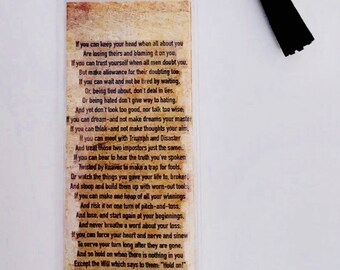 If you can keep your head when all about you
Are losing theirs and blaming it on you;
If you can trust yourself when all men doubt you,
But make allowance for their doubting too:
If you can wait and not be tired by waiting,
Or, being lied about, don't deal in lies,
Or being hated don't give way to hating,
And yet don't look too good, nor talk too wise;
If you can dream-and not make dreams your master;
If you can think-and not make thoughts your aim,
If you can meet with Triumph and Disaster
And treat those two impostors just the same:
If you can bear to hear the truth you've spoken
Twisted by knaves to make a trap for fools,
Or watch the things you gave your life to, broken,
And stoop and build them up with worn-out tools;
If you can make one heap of all your winnings
And risk it on one turn of pitch-and-toss,
And lose, and start again at your beginnings,
And never breathe a word about your loss:
If you can force your heart and nerve and sinew
To serve your turn long after they are gone,
And so hold on when there is nothing in you
Except the Will which says to them: "Hold on!"